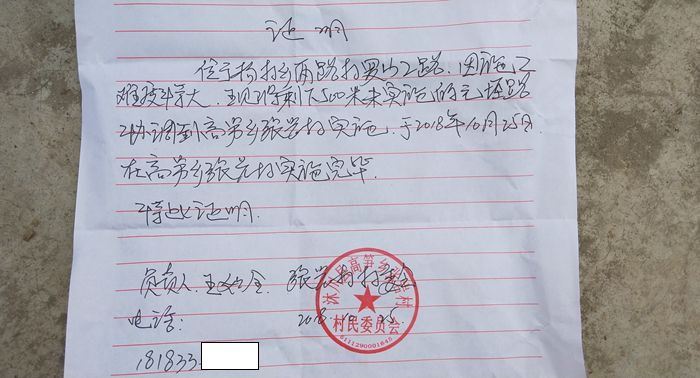 证明
位于杨村乡两路村罗山工路，因施工
难度非常大，现将剩下500米未实施的主埂路
协调到高笋乡张岩村实施，于2018年10月25日
在高笋乡张岩村实施完毕.
特此证明.
负责人.王 全. 张岩村村委会
电话: 2018.10.25
181833
高笋乡 村
村民委员会
5111290001645